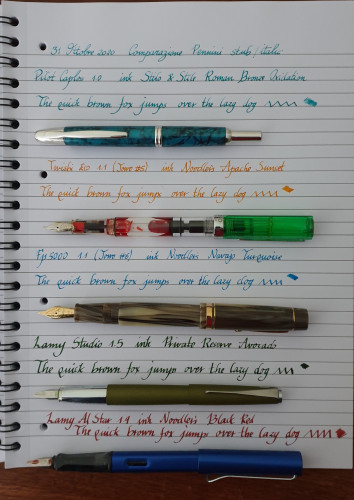 31 Ottobre 2020 Comparazione Pennini stub/italic
Pilot Capless 1.0 ink Stilo & Stile Roman Bronze Oxidation
The quick brown fox jumps over the lazy dog
Twsbi Eco 1.1 (Jowo #5) ink Noodler's Apache Sunset
The quick brown fox jumps over the lazy dog
1.1 (Jowo #6) ink Noodler's Navajo Turquoise
The quick brown fox jumps over the lazy dog
Lamy Studio 1.5 ink Private Reserve Avocado
The quick brown fox jumps over the lazy dog
Lamy Al Star 1.1 ink Noodler's Black Red
The quick brown fox jumps over the lazy dog